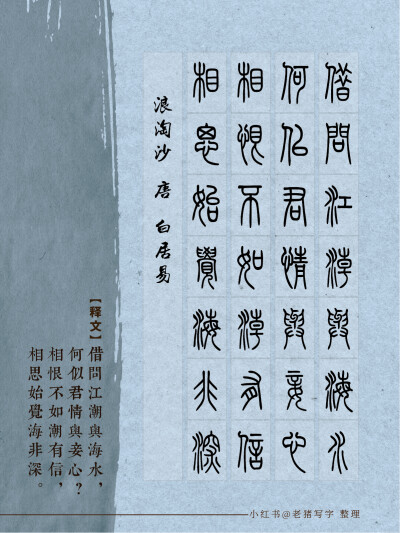 借問江潮與海水
何似君情與妾心
相恨不如潮有信
相思始覺海非深
浪淘沙 唐 白居易
【释文】借問江潮與海水，
何似君情與妾心？
相恨不如潮有信，
相思始覺海非深。
小红书@老猪写字 整理